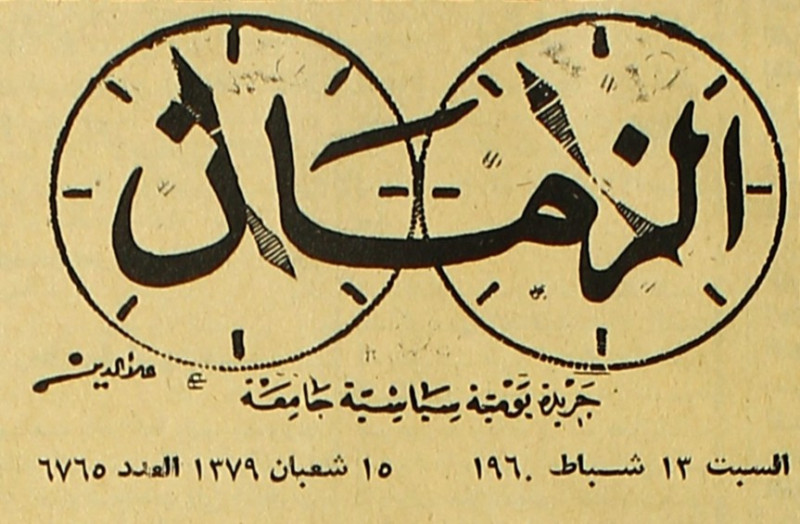 الزمان
علاء الدين
جَرِيدَة يَوْمِيَّة سِيَاسِيَّة جَامِعَة
السبت ١٣ شباط ١٩٦٠ ١٥ شعبان ١٣٧٩ العدد ٦٧٦٥